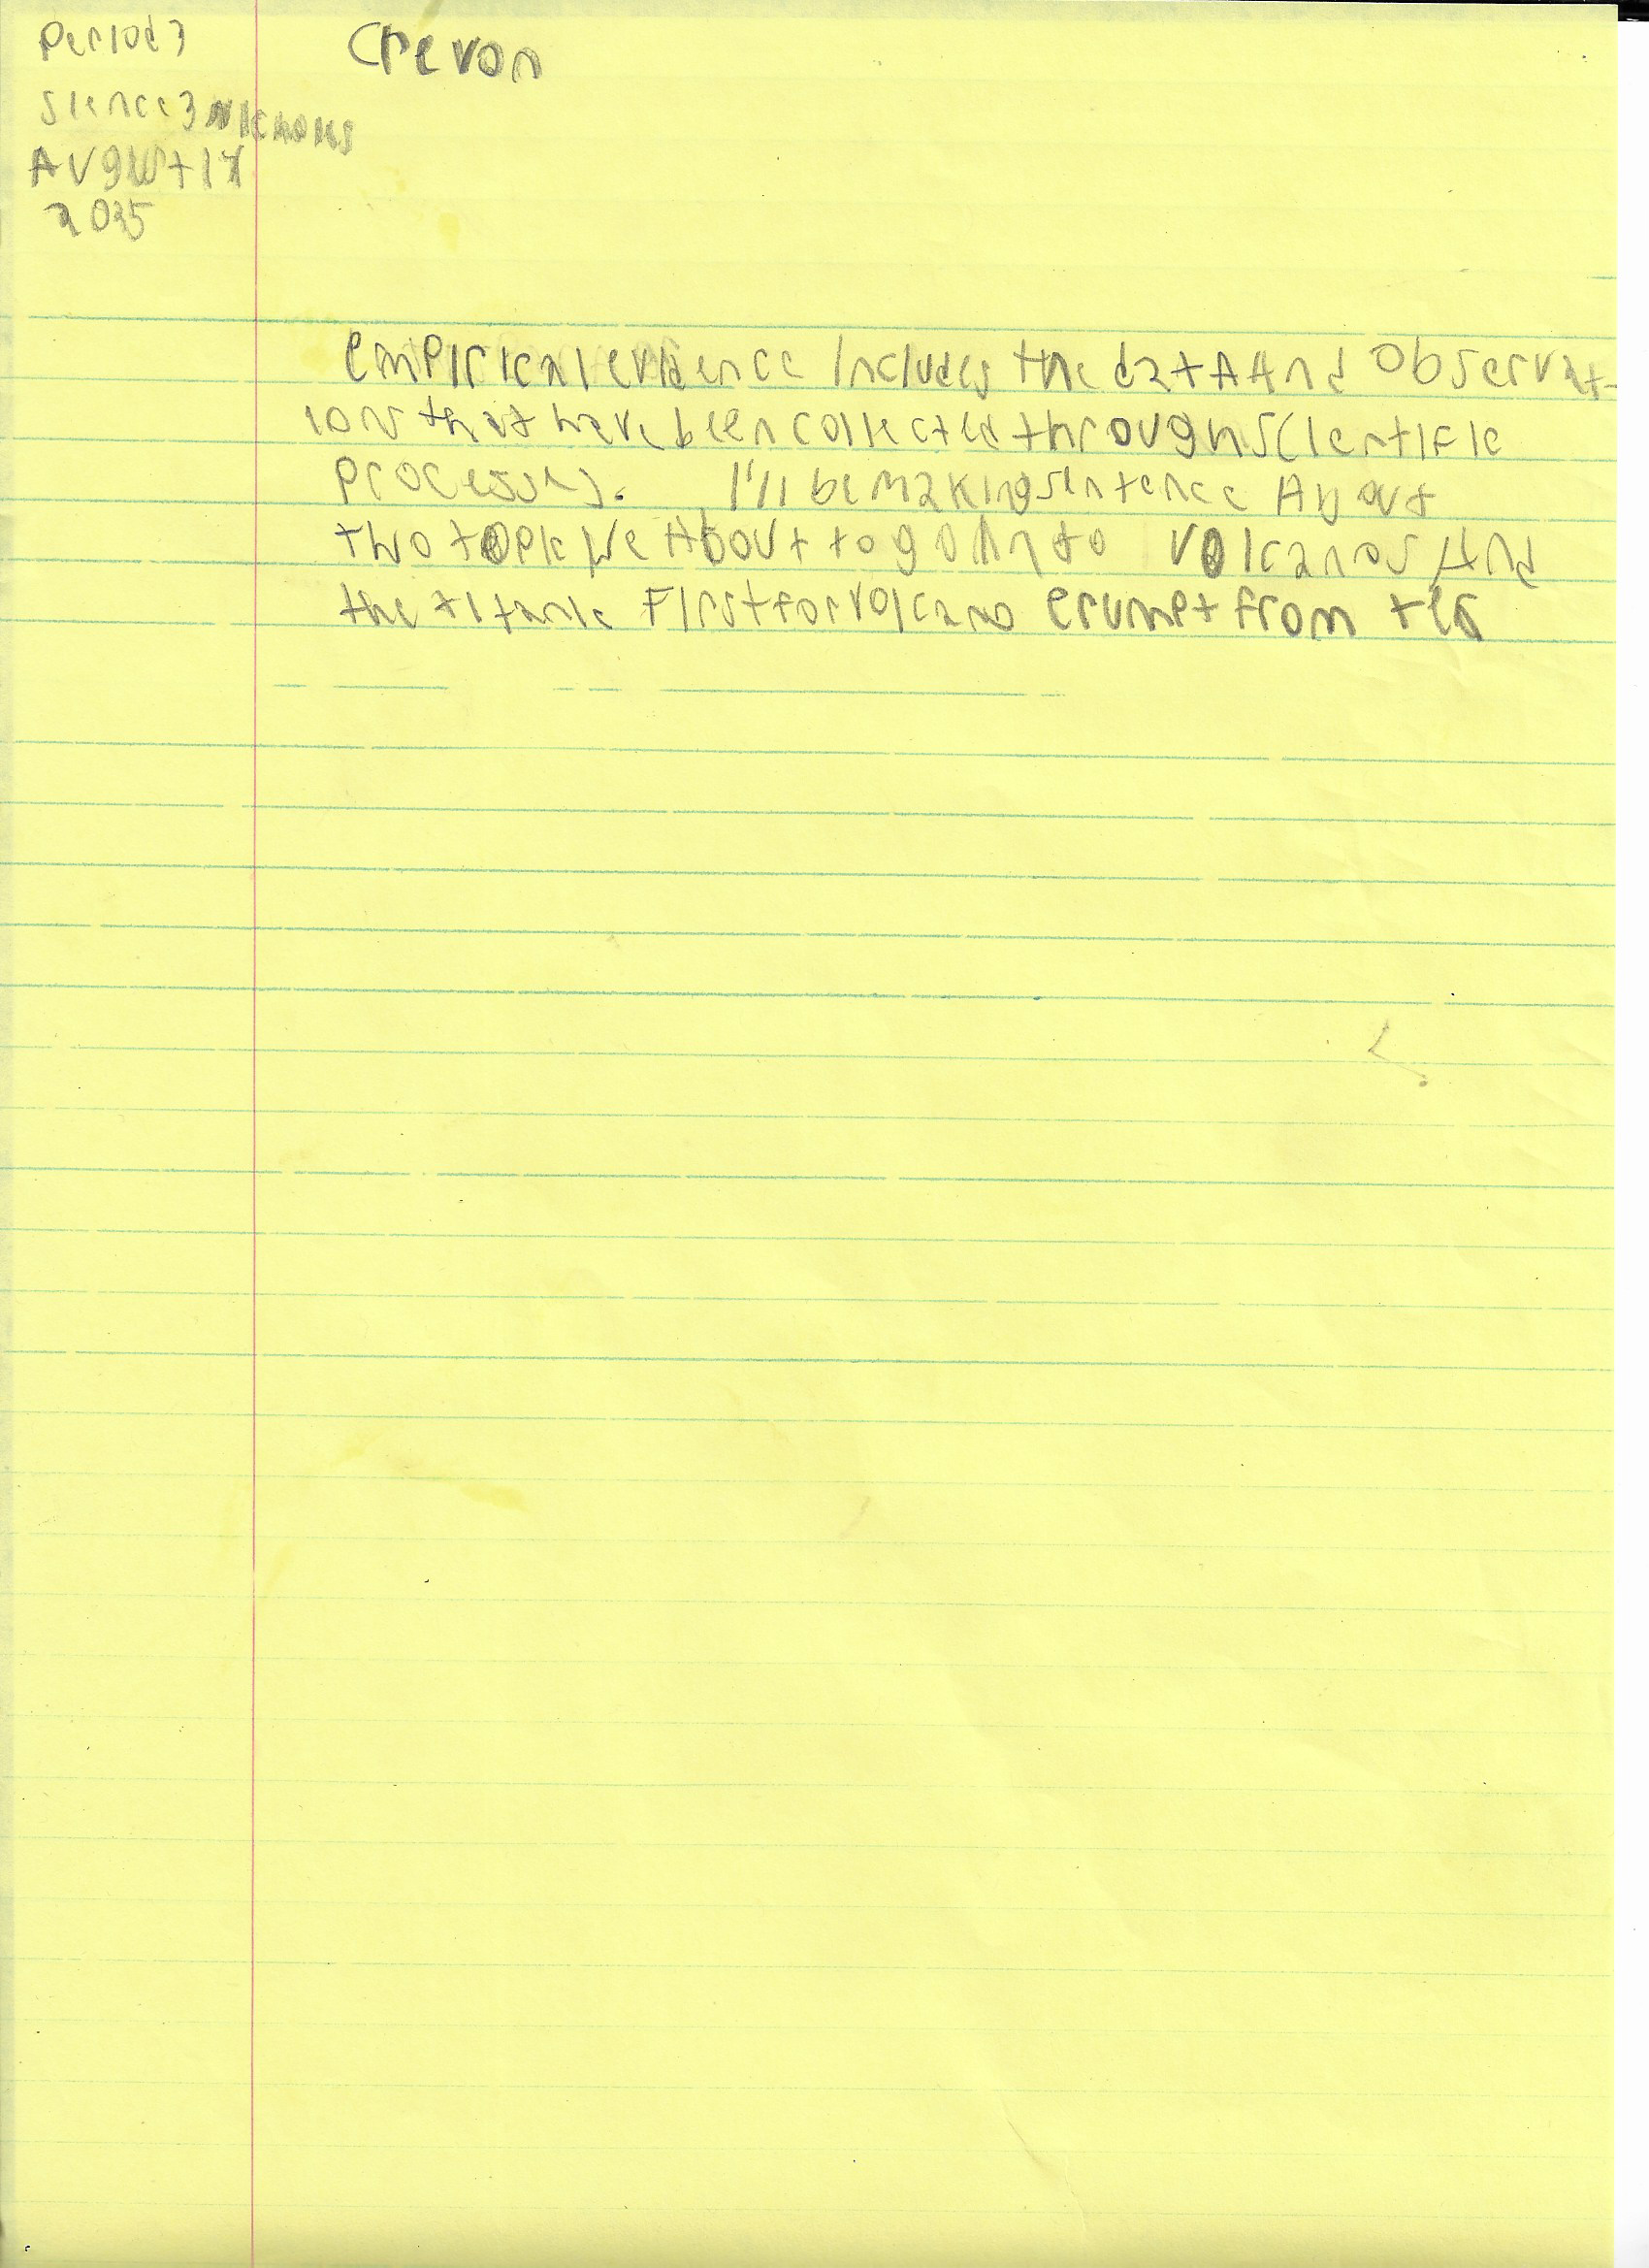 Period 3
Crevon
Sience 3 Nichols
August 1
2025
empirical evidence includes the data And observat-
ions that have been collected through scientific
processes. I'll be making sentence About
two topic we About to go in to volcanos And
the titanic First for volcano erumpt from